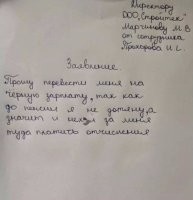 Директору
ООО „Стройтек"
Марчинову М. В
от сотрудника
Прохорова И. С.
Заявление
Прошу перевести меня на
чёрную зарплату, так как
до пенсии я не дотяну, а
значит и нехуй за меня
туда платить отчисления